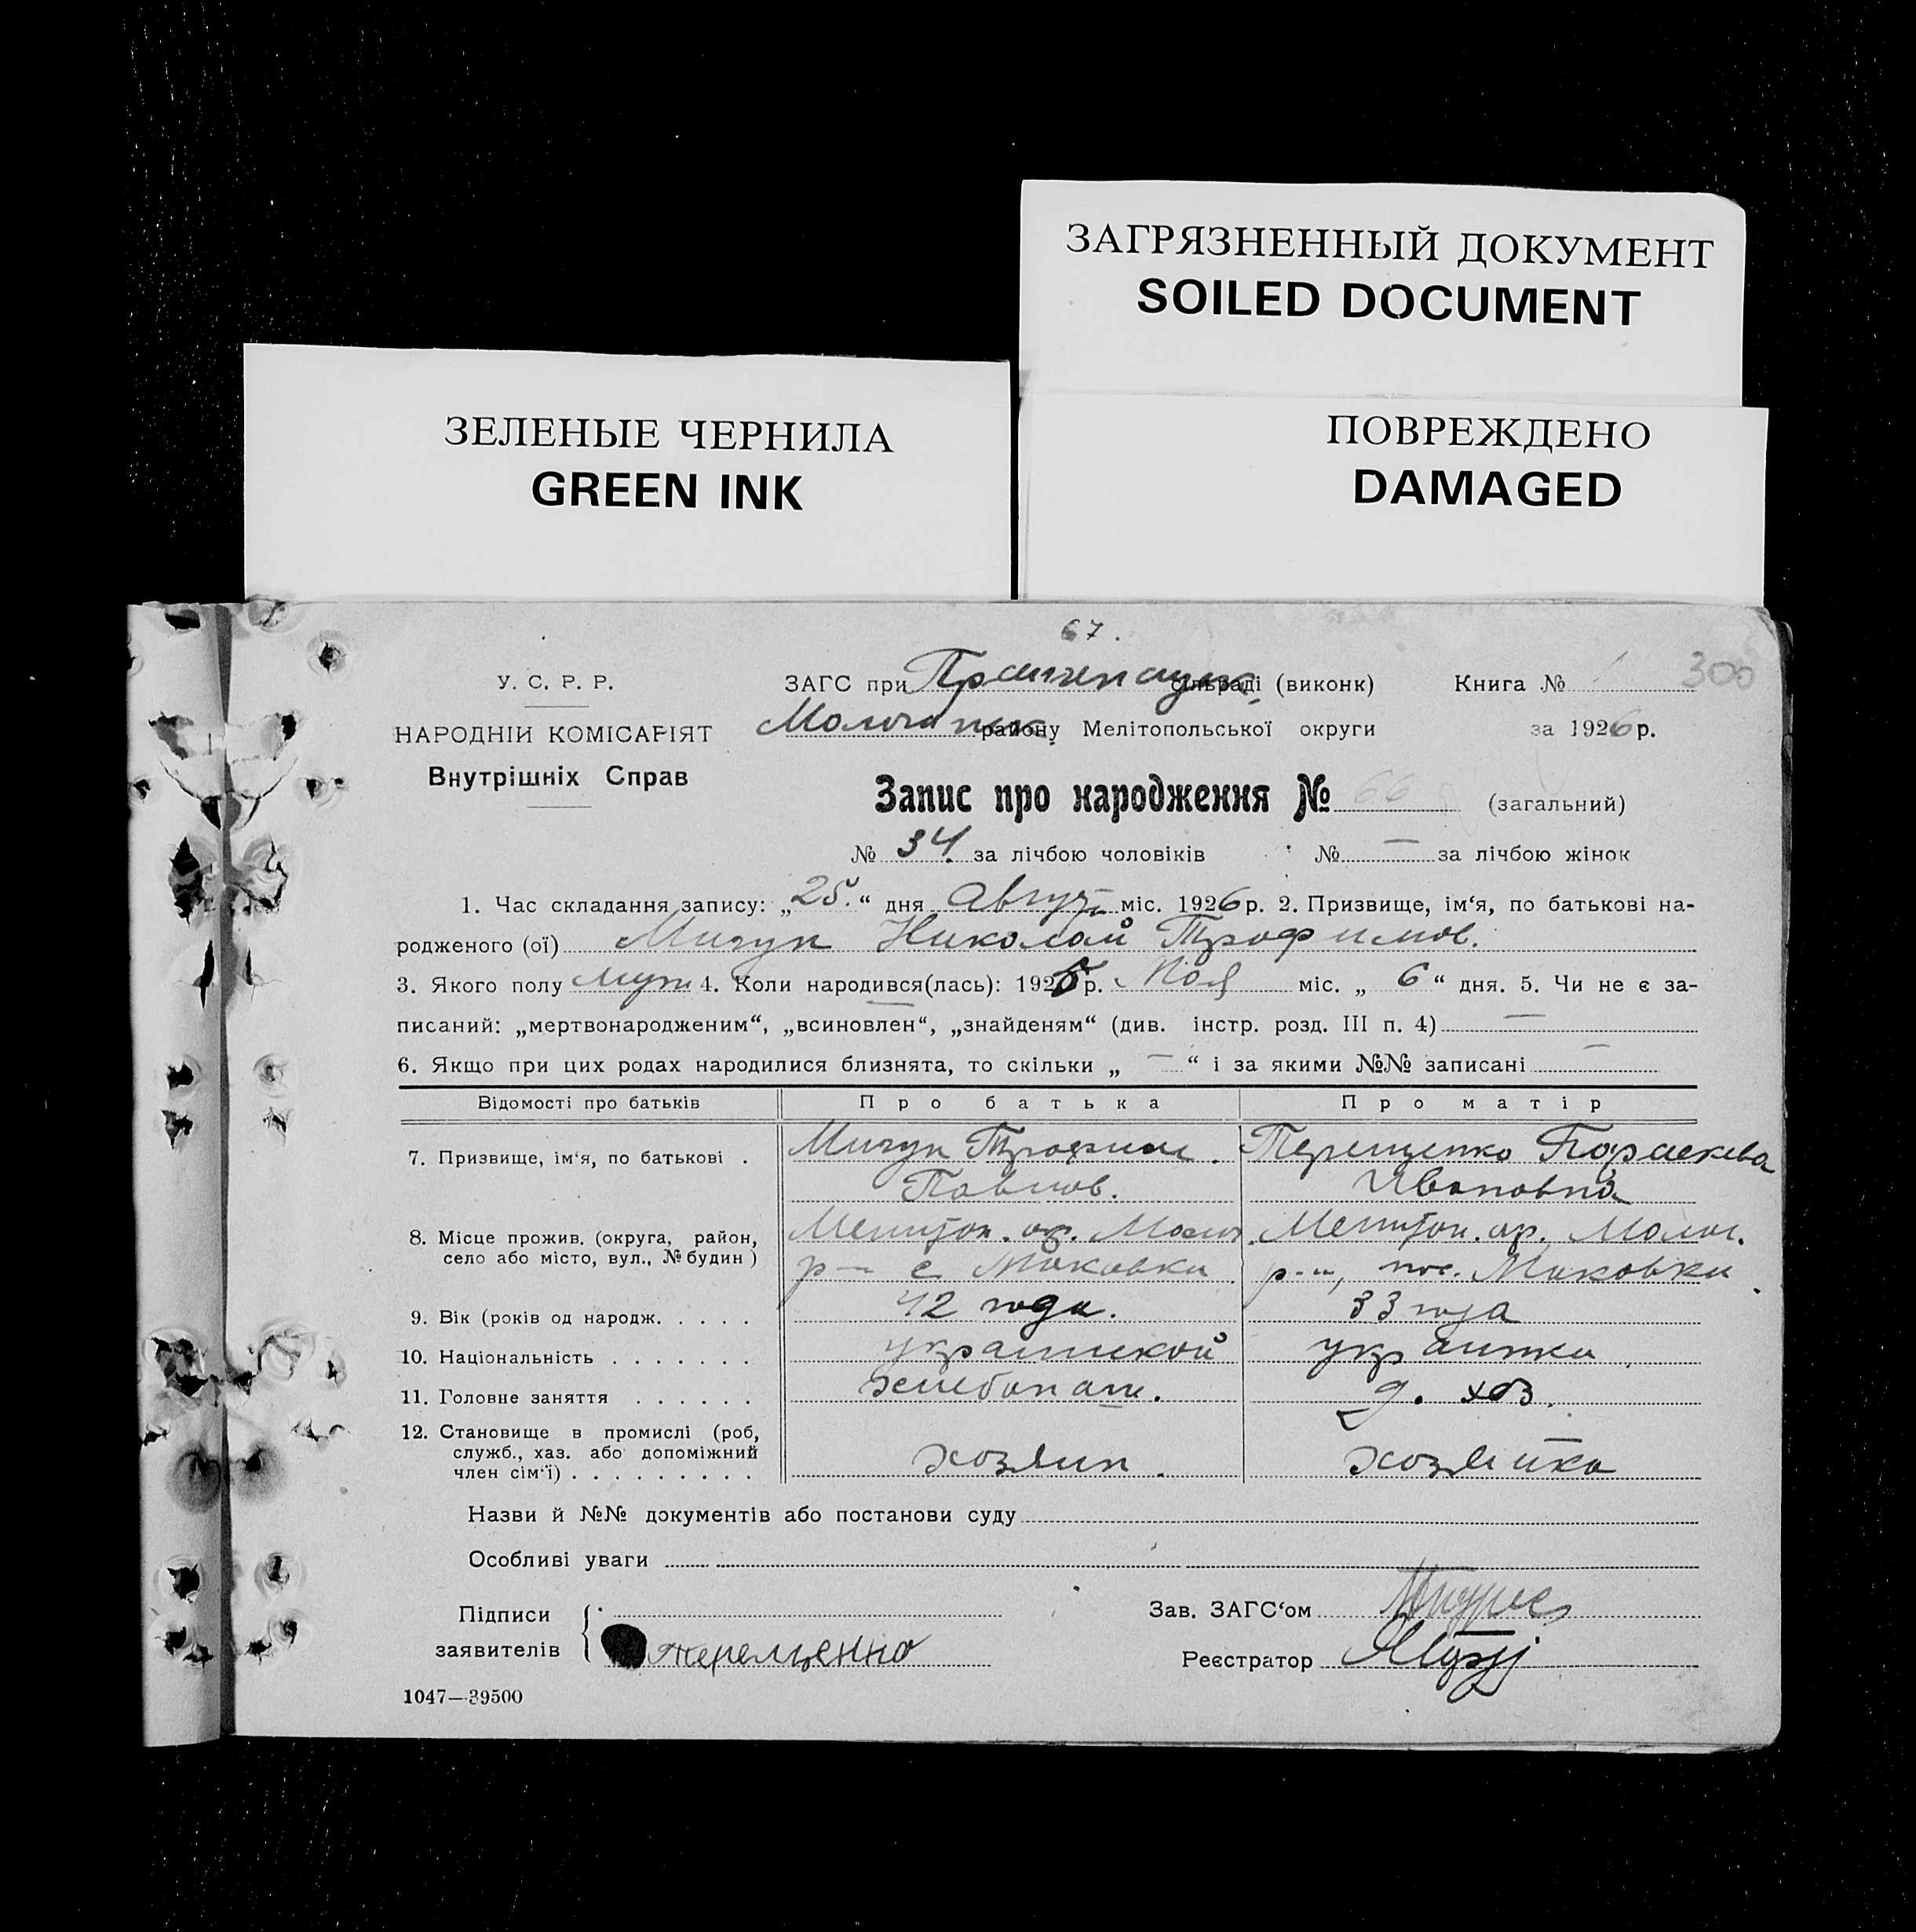 ЗАГРЯЗНЕННЫЙ ДОКУМЕНТ
SOILED DOCUMENT
ЗЕЛЕНЫЕ ЧЕРНИЛА
GREEN INK
ПОВРЕЖДЕНО
DAMAGED
67.
300
У. С. Р. Р.
НАРОДНІЙ КОМІСАРІЯТ
Внутрішніх Справ
ЗАГС при сільраді (виконк) Книга №
району Мелітопольської округи за 1926 р.
Запис про народження № 66 (загальний)
№ 34 за лічбою чоловіків № — за лічбою жінок
1. Час складання запису: „25.“ дня Август міс. 1926 р. 2. Призвище, ім‘я, по батькові на-
родженого (ої) Мичун Николай Трофимов.
3. Якого полу муж 4. Коли народився(лась): 192 р. міс. „ 6 “ дня. 5. Чи не є за-
писаний: „мертвонародженим“, „всиновлен“, „знайденям“ (див. інстр. розд. III п. 4) —
6. Якщо при цих родах народилися близнята, то скільки „ — “ і за якими №№ записані —
Відомості про батьків Про батька Про матір
7. Призвище, ім‘я, по батькові . Мичун Трофим Терещенко Параскева
Павлов. Ивановна
8. Місце прожив. (округа, район, Мелитоп. ок. Молоч. Мелитоп. ок. Молоч.
село або місто, вул., № будин ) р-н с. Маковка р-н, пос. Маковка
9. Вік (років од народж. . . . . 42 года. 33 года
10. Національність . . . . . . . украинской украинка
11. Головне заняття . . . . . . хлебопаш. д. хоз.
12. Становище в промислі (роб,
служб., хаз. або допоміжний
член сім‘ї) . . . . . . . . . хозяин. хозяйка
Назви й №№ документів або постанови суду
Особливі уваги
Підписи
заявителів терещенко
Зав. ЗАГС‘ом
Реєстратор
1047—39500